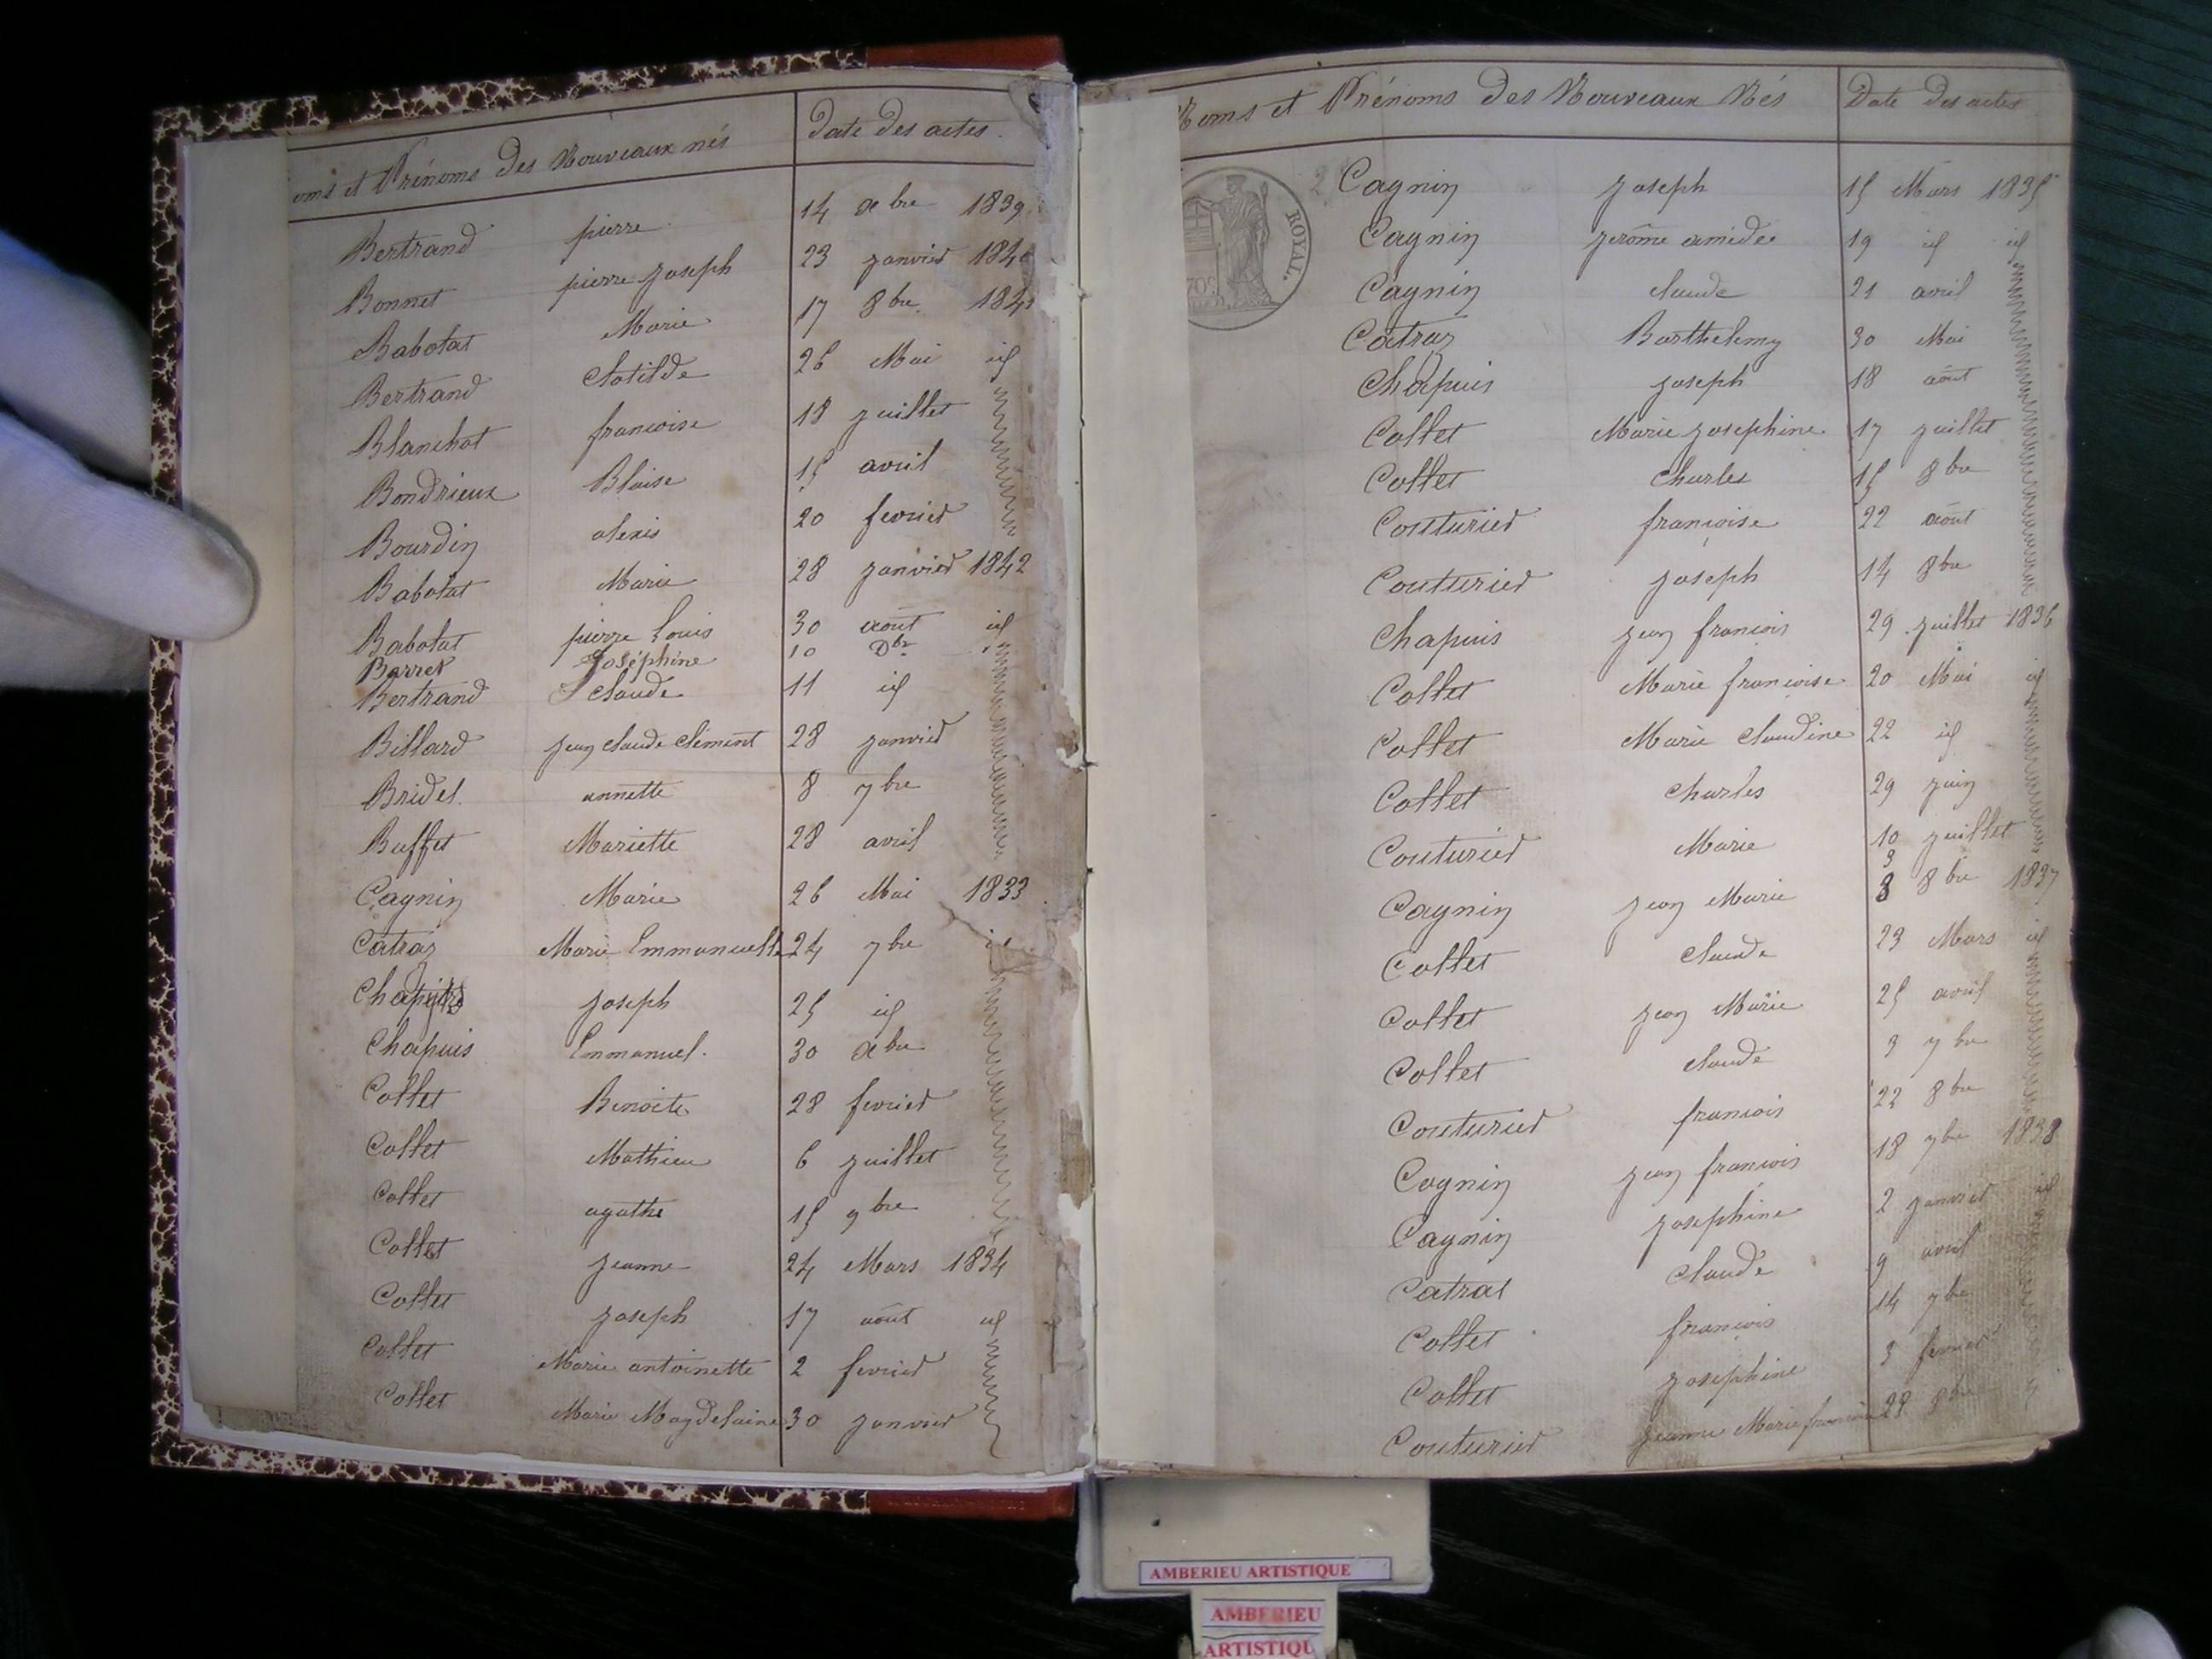 oms et Prénoms des Nouveaux nés Date des actes.
Bertrand pierre 14 xbre 1839
Bonnet pierre joseph 23 janvier 1840
Babolat Marie 17 8bre 1841
Bertrand Clotilde 26 Mai id
Blanchot francoise 18 juillet
Bondrieux Blaise 15 avril
Bourdin alexis 20 fevrier
Babolat Marie 28 janvier 1842
Babolat pierre Louis 30 août id
Barret Joséphine 10 Dbr
Bertrand claude 11 id
Billard jean claude clément 28 janvier
Bridel annette 8 7bre
Buffet Mariette 28 avril
Cagnin Marie 26 Mai 1833
Catraz Marie Emmanuelle 24 7bre id
joseph 25 id
Chapuis Emmanuel 30 xbre
Collet Benoite 28 fevrier
Collet Mathieu 6 juillet
Collet agathe 15 9bre
Collet jeanne 24 Mars 1834
Collet joseph 17 août id
Collet Marie antoinette 2 fevrier
Collet Marie Magdelaine 30 janvier
Noms et Prénoms des Nouveaux Nés Date des actes
ROYAL.
Cagnin joseph 15 Mars 1835
Cagnin jerôme amidée 19 id id
Cagnin claude 21 avril
Catraz Barthelemy 30 Mai
Chapuis joseph 18 août
Collet Marie josephine 17 juillet
Collet Charles 15 8bre
Couturier françoise 22 août
Couturier joseph 14 8bre
Chapuis jean francois 29 juillet 1836
Collet Marie francoise 20 Mai id
Collet Marie claudine 22 id
Collet Charles 29 juin
Couturier Marie 10 juillet
Cagnin jean Marie 3 8 8bre 1837
Collet claude 23 Mars id
Collet jean Marie 25 avril
Collet claude 3 7bre
Couturier francois 22 8bre
Cagnin jean francois 18 7bre 1838
Cagnin josephine 2 janvier id
Catrat claude 9 avril
Collet françois 14 7bre
Collet josephine 3 fevrier
Couturier jeanne Marie francoise 28 8bre
AMBERIEU ARTISTIQUE
AMBERIEU
ARTISTIQU